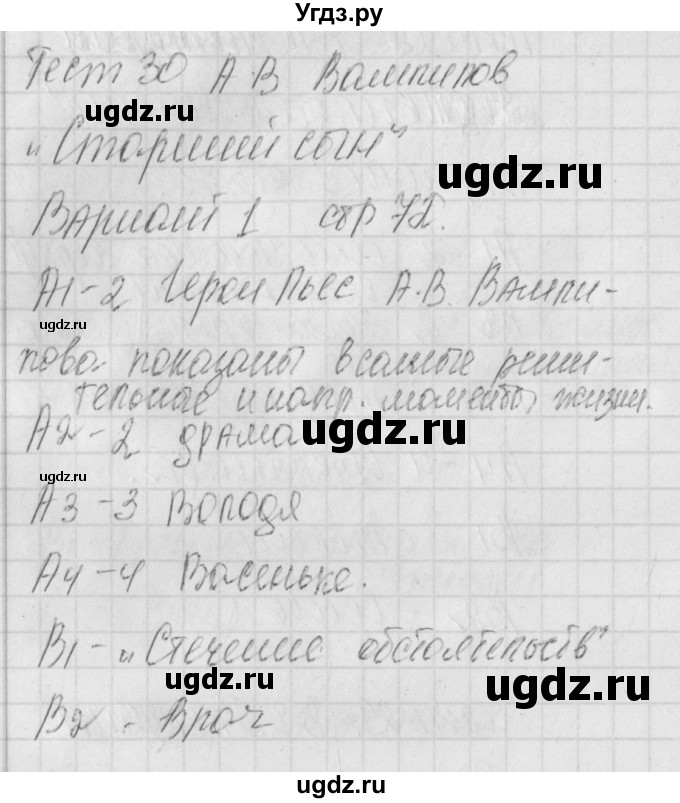 Угдз.ру
Тест 30 А.В Вампилов
ugdz.ru
„Старший сын"
ugdz.ru
Вариант 1 стр 72.
А1-2 Герои пьес А.В. Вампи-
ugdz.ru
лова показаны в самые реши-
тельные и напр. моменты жизни.
ugdz.ru
А2-2 драма
ugdz.ru
А3-3 Володя
А4-4 Васеньке.
В1- „Стечение обстоятельств"
ugdz.ru
ugdz.ru
В2 - Врач
ugdz.ru